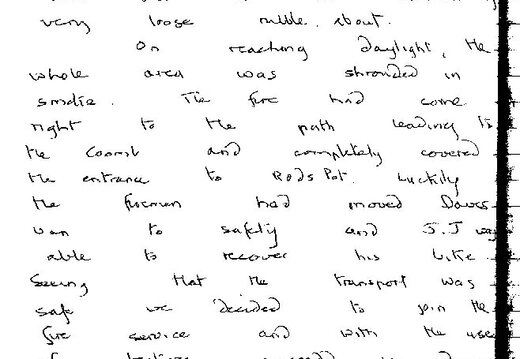 very loose rubble about.
On reaching daylight, the
whole area was shrouded in
smoke. The fire had come
right to the path leading to
the Coomb and completely covered
the entrance to Rods Pot. Luckily
the firemen had moved Daves
van to safety and J.J was
able to recover his bike.
Seeing that the transport was
safe we decided to join the
fire service and with the use
of